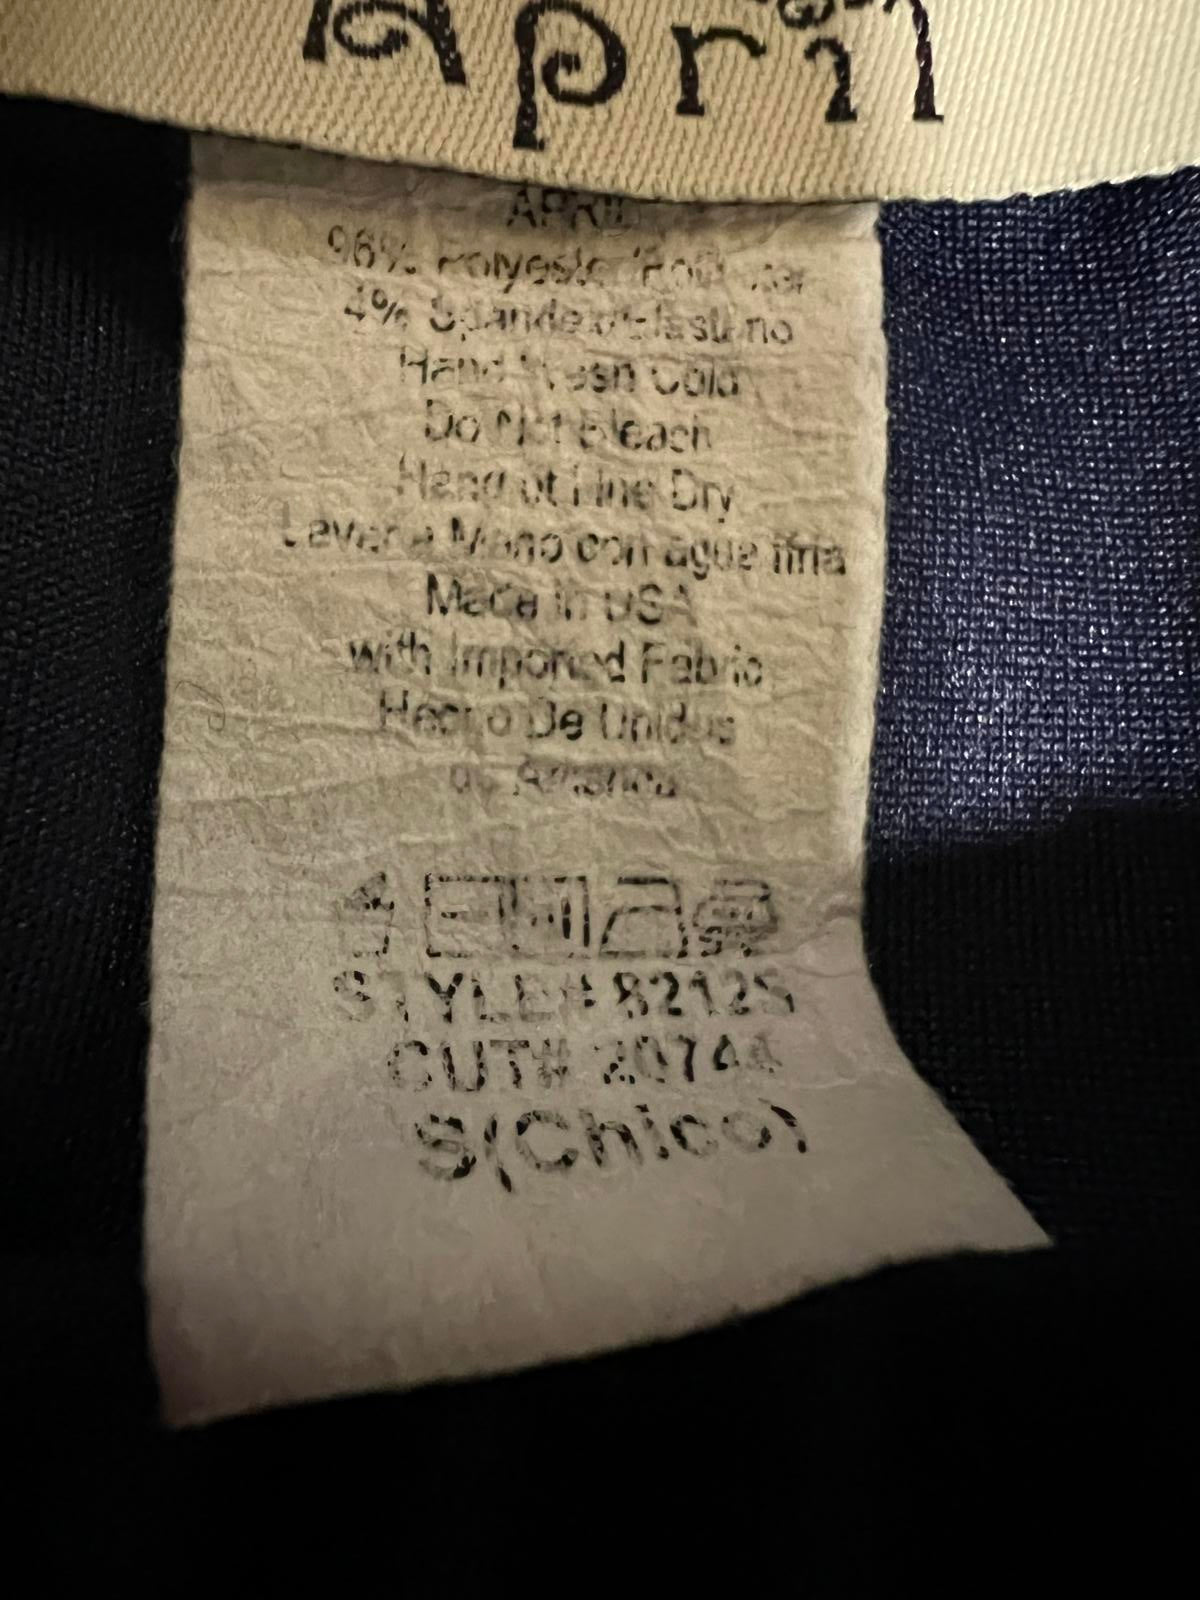 April
APRIL
96% Polyester/Poliester
4% Spandex/Elastano
Hand Wash Cold
Do Not Bleach
Hang ot Line Dry
Lavar a Mano con agua fria
Made in USA
with Imported Fabric
Hecho De Unidos
de America
STYLE# 8212S
CUT# 20744
S(Chico)